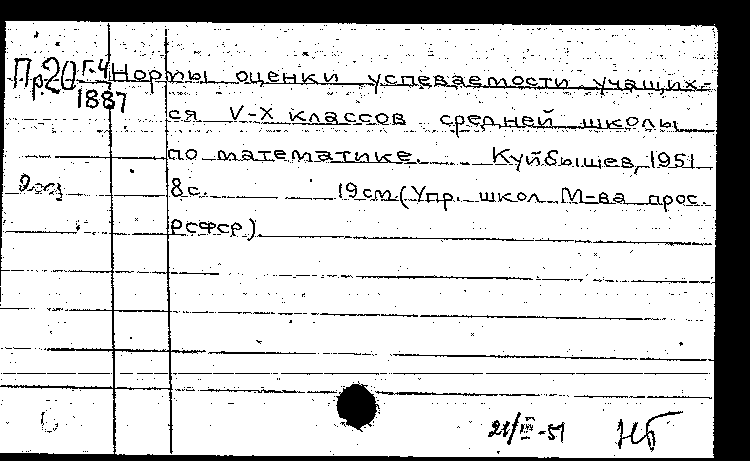 Пр20 Г-4 Нормы оценки успеваемости учащих-
1887
ся V-X классов средней школы
по математике. Куйбышев, 1951
8с. 19см (Упр. школ М-ва прос.
РСФСР)
21/III-51 НБ